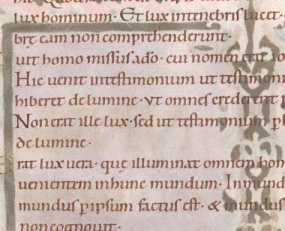 lux hominum · Et lux intenebris lucet ·
brę eam non comprehenderunt ·
uit homo missus a do · cui nomen erat io
Hic uenit intestimonium ut testimoni
hiberet de lumine · ut omnes crederent p
Non erat ille lux · sed ut testimonium ph
de lumine ·
rat lux uera · quę illuminat omnem hom
uenientem inhunc mundum · In mund
mundus p ipsum factus est · & mundus
non cognouit ·